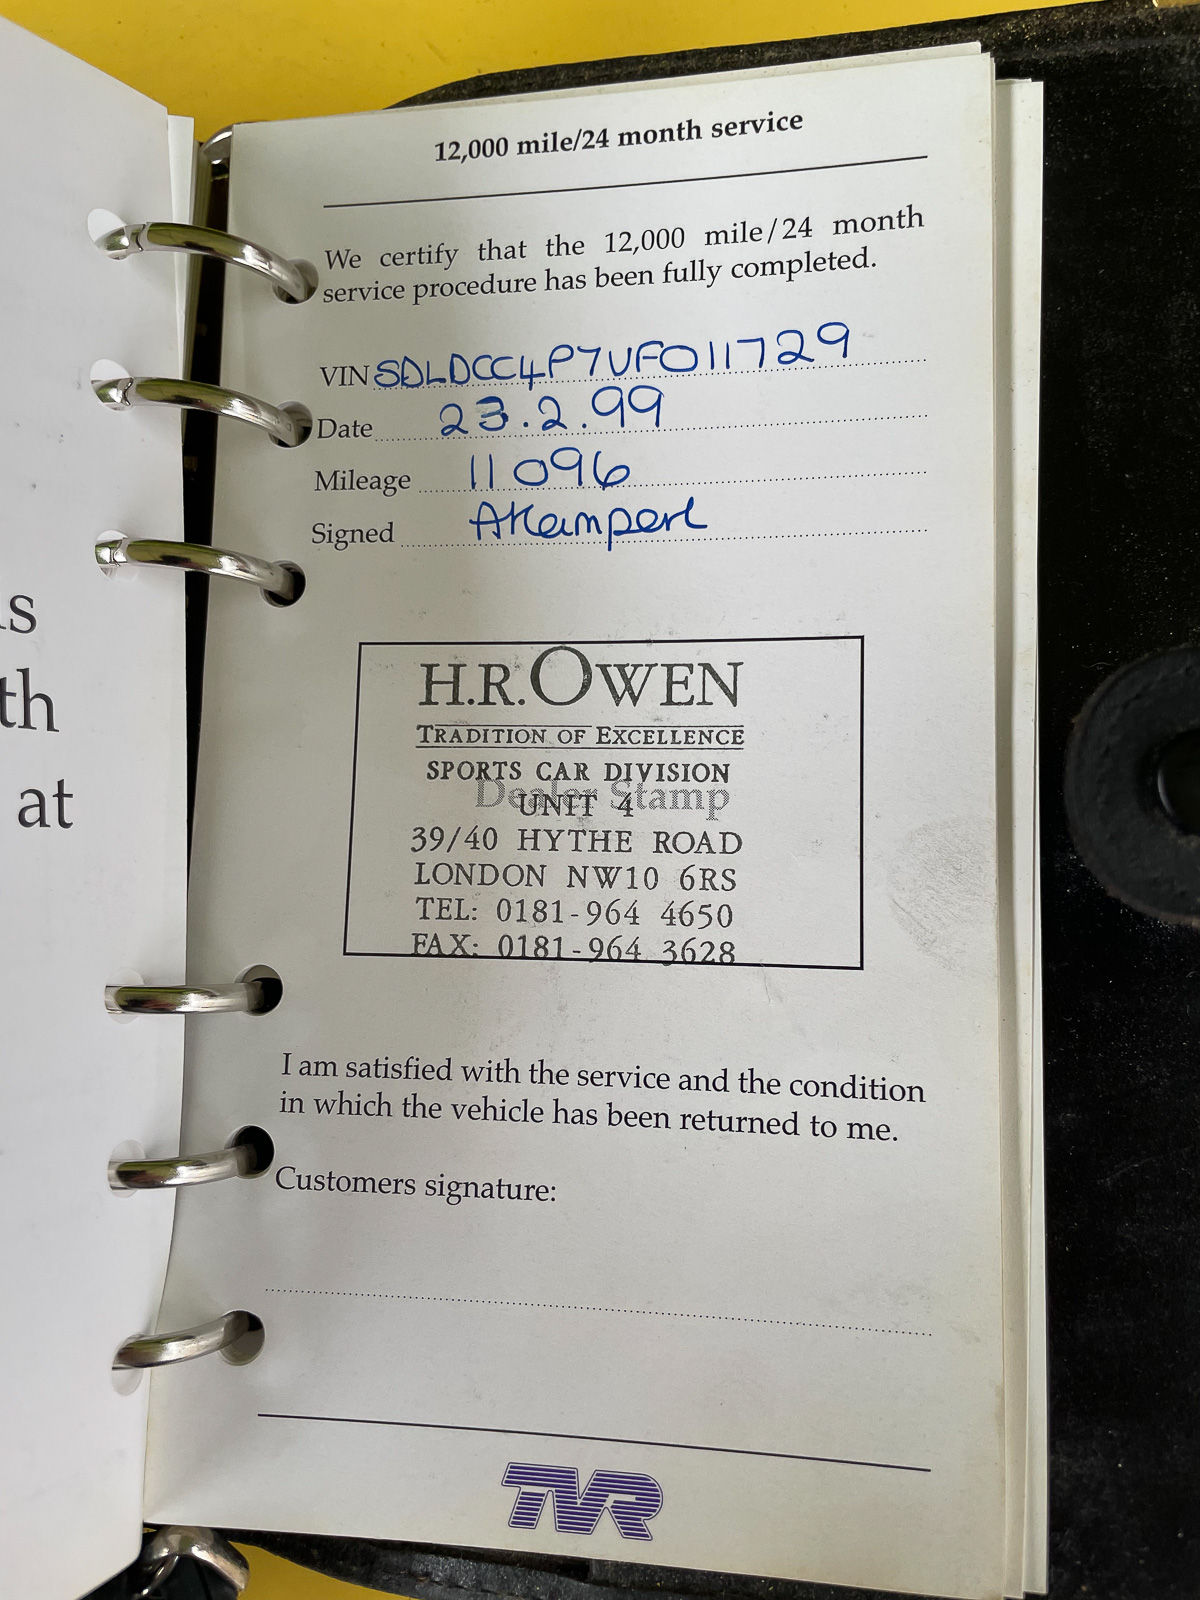 is
th
at
12,000 mile/24 month service
We certify that the 12,000 mile/24 month
service procedure has been fully completed.
VIN SDLDCC4P7VF011729
Date 23.2.99
Mileage 11096
Signed
H.R.OWEN
TRADITION OF EXCELLENCE
SPORTS CAR DIVISION
Dealer Stamp
UNIT 4
39/40 HYTHE ROAD
LONDON NW10 6RS
TEL: 0181-964 4650
FAX: 0181-964 3628
I am satisfied with the service and the condition
in which the vehicle has been returned to me.
Customers signature:
TVR